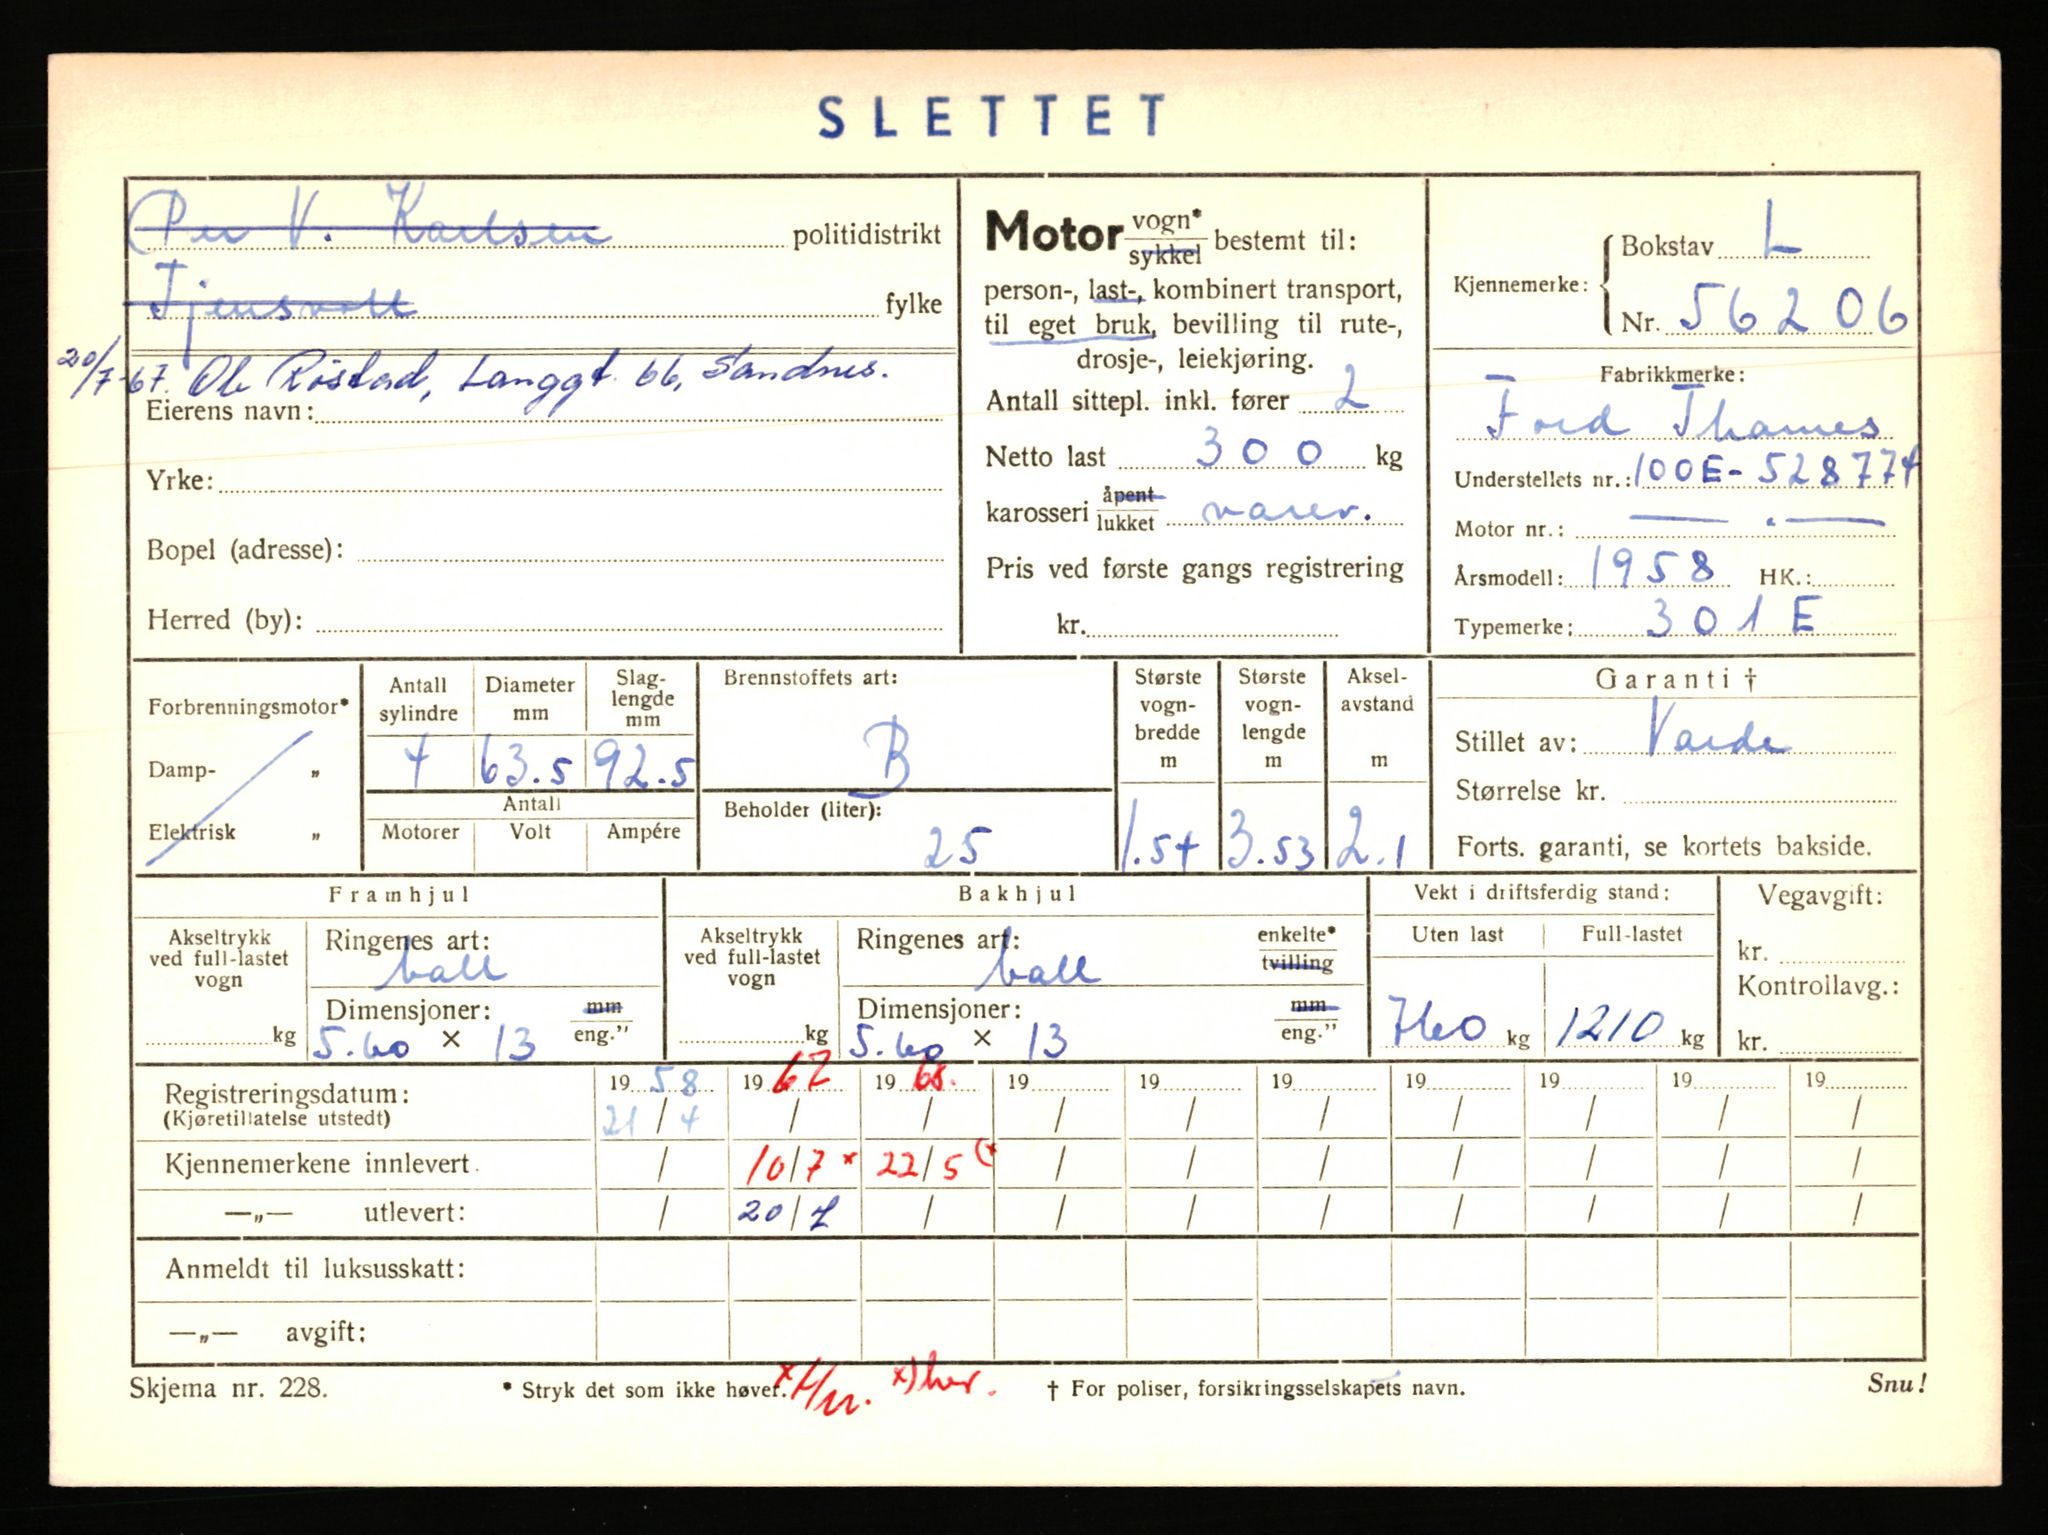 SLETTET
Per V. Karlsen politidistrikt
Tjensvoll fylke
20/7-67. Ole Röstad, Langgt. 66, Sandnes.
Eierens navn:
Yrke:
Bopel (adresse):
Herred (by):
Motor vogn* / sykkel bestemt til:
person-, last-, kombinert transport,
til eget bruk, bevilling til rute-,
drosje-, leiekjøring.
Antall sittepl. inkl. fører 2
Netto last 300 kg
karosseri åpent / lukket varev.
Pris ved første gangs registrering
kr.
Kjennemerke: Bokstav L
Nr. 56206
Fabrikkmerke:
Ford Thames
Understellets nr.: 100E-528774
Motor nr.: — . —
Årsmodell: 1958 HK.:
Typemerke: 301E
Forbrenningsmotor*
Damp- „
Elektrisk „
Antall sylindre 4
Diameter mm 63.5
Slag-lengde mm 92.5
Antall
Motorer Volt Ampére
Brennstoffets art:
B
Beholder (liter):
25
Største vogn-bredde m 1.54
Største vogn-lengde m 3.53
Aksel-avstand m 2.1
Garanti †
Stillet av: Varde
Størrelse kr.
Forts. garanti, se kortets bakside.
Framhjul
Akseltrykk ved full-lastet vogn kg
Ringenes art: ball
Dimensjoner: mm / eng."
5.60 × 13
Bakhjul
Akseltrykk ved full-lastet vogn kg
Ringenes art: ball enkelte* / tvilling
Dimensjoner: mm / eng."
5.60 × 13
Vekt i driftsferdig stand:
Uten last Full-lastet
760 kg 1210 kg
Vegavgift:
kr.
Kontrollavg.:
kr.
Registreringsdatum: 1958 1967 1968. 19 19 19 19 19 19 19
(Kjøretillatelse utstedt) 21/4 / / / / / / / / /
Kjennemerkene innlevert. / 10/7 x 22/5 (x / / / / / / /
—„— utlevert: / 20/7 / / / / / / / /
Anmeldt til luksusskatt:
—„— avgift:
Skjema nr. 228. * Stryk det som ikke høver. x) her. † For poliser, forsikringsselskapets navn. Snu!